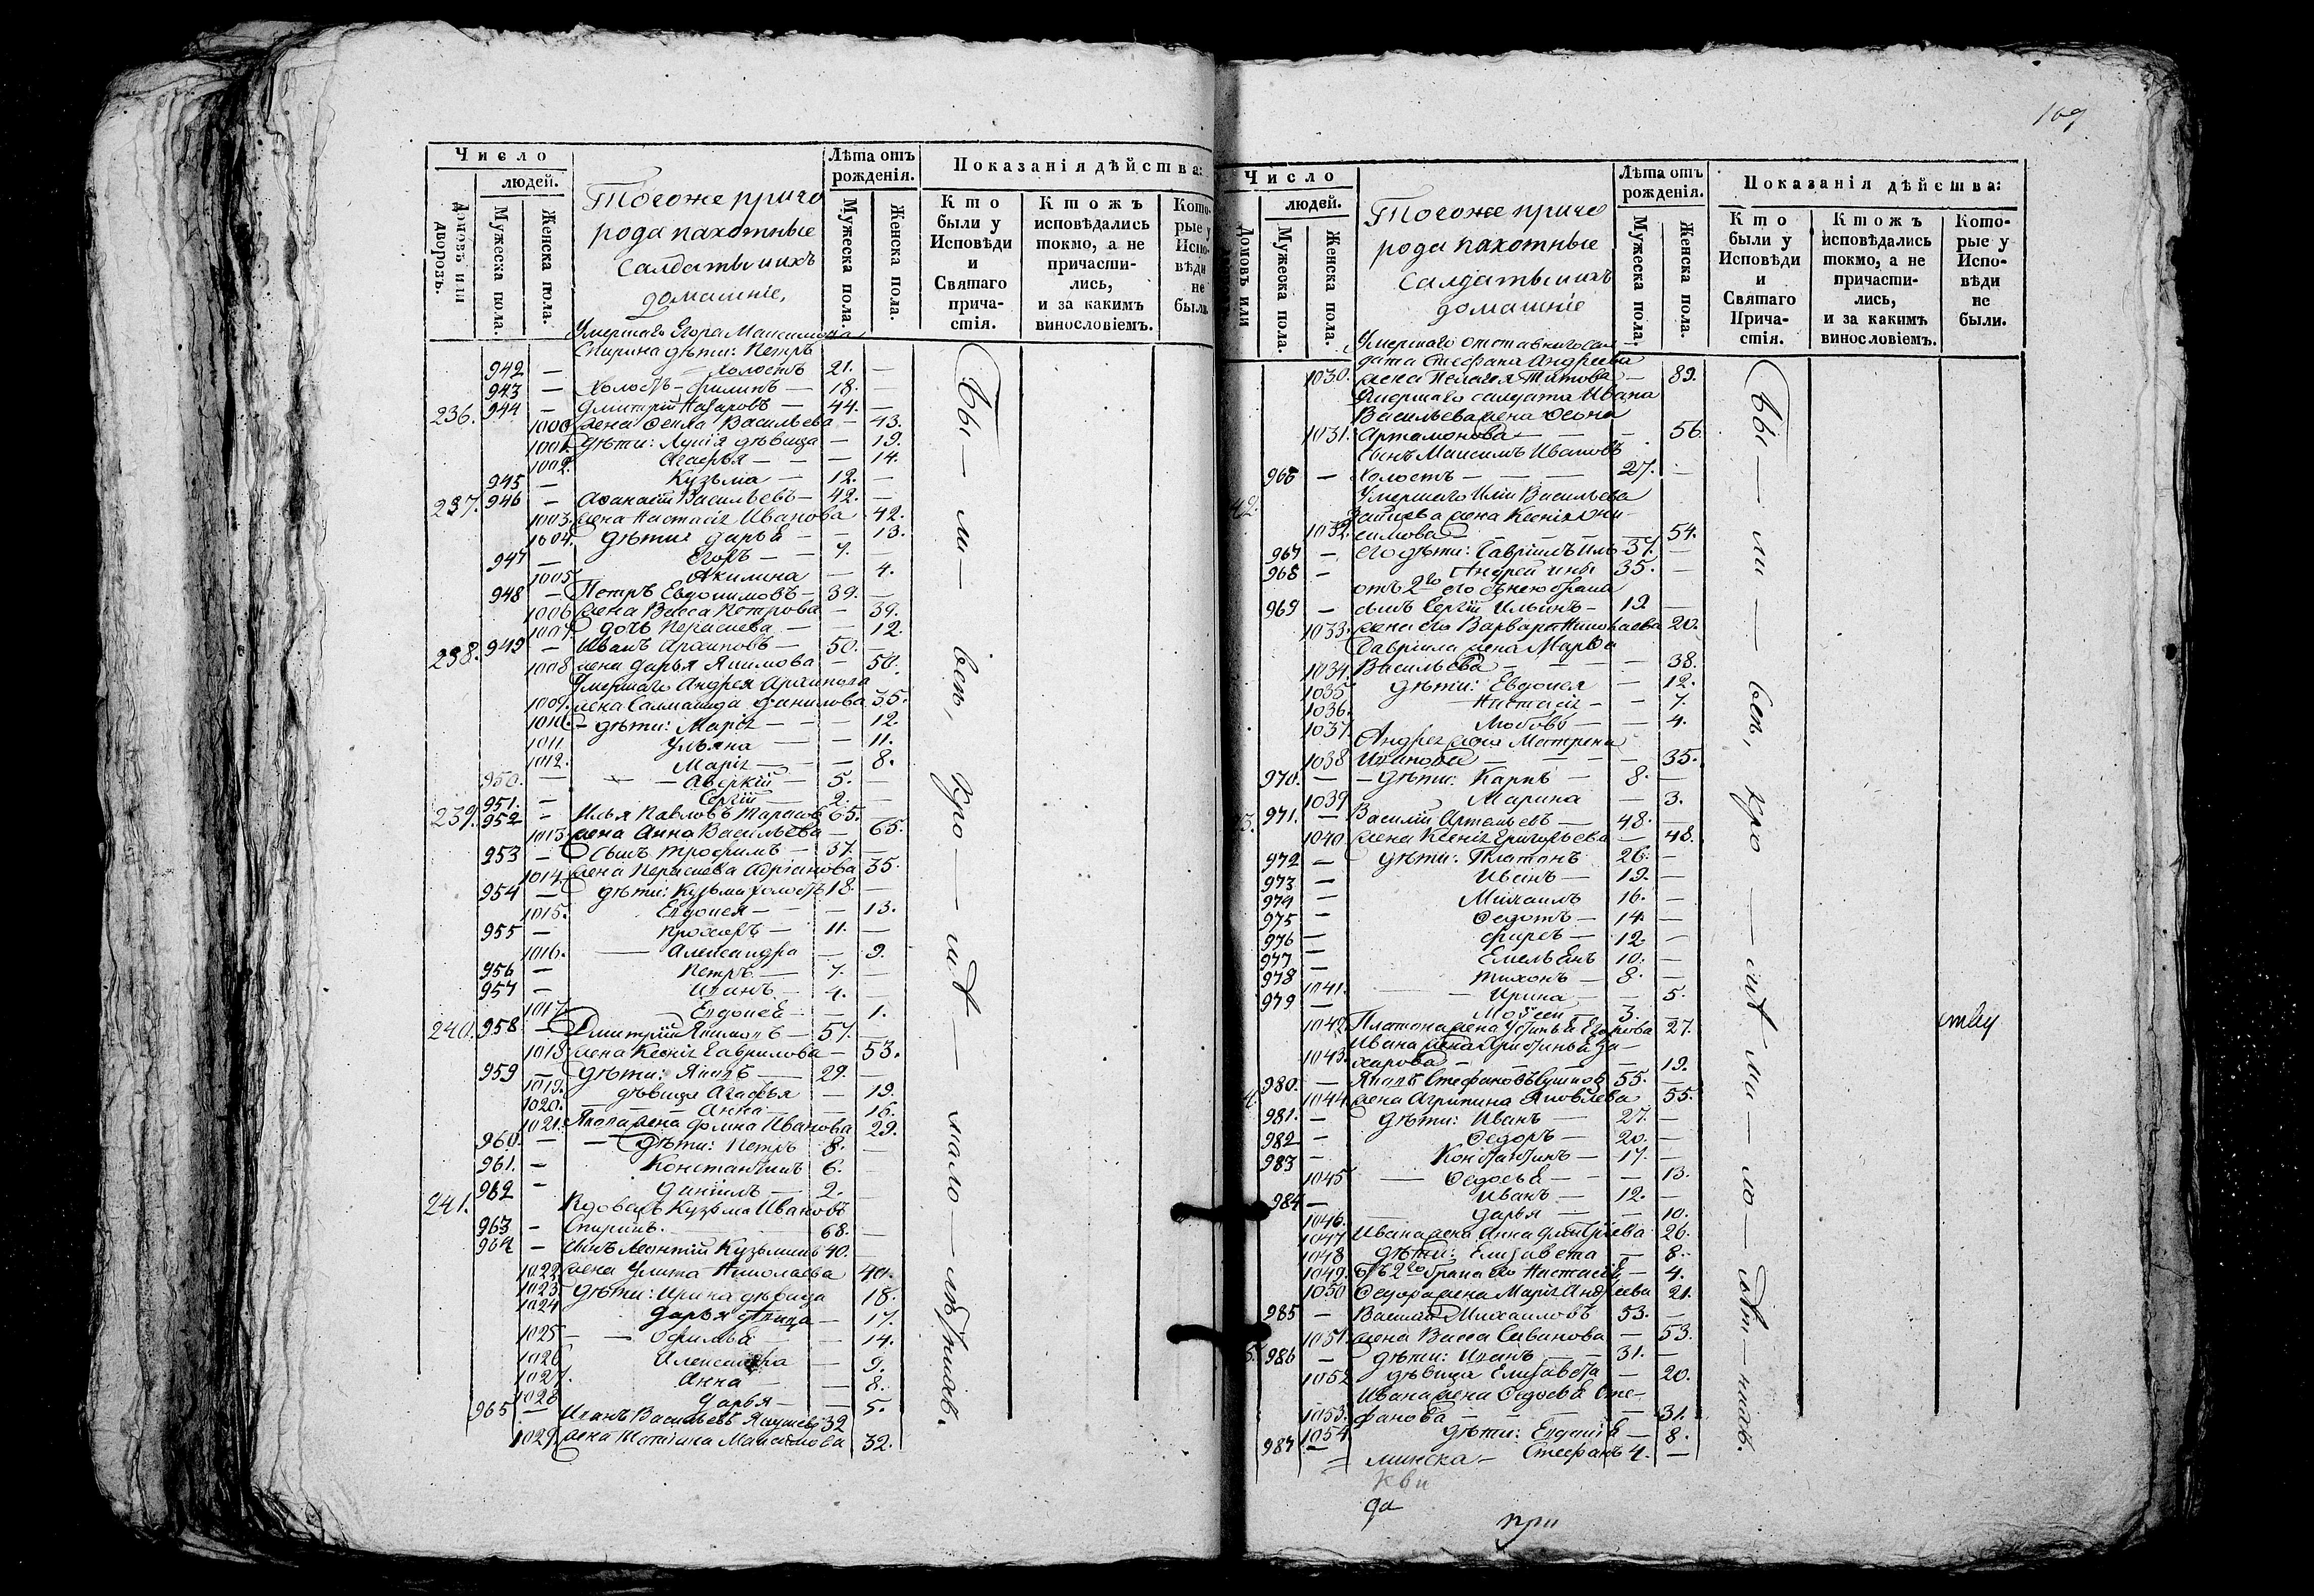 Число
людей.
Домовъ или дворовъ.
Мужеска пола.
Женска пола.
Тогоже приго
рода пахотные
Салдаты ихъ
домашніе,
Лѣта отъ
рожденія.
Мужеска пола
Женска пола.
Показанія дѣйства:
Кто
были у
Исповѣди
и
Святаго
прича-
стія.
Ктожъ
исповѣдались
токмо, а не
причасти-
лись,
и за какимъ
винословіемъ.
Кото-
рые у
Испо-
вѣди
не
были
Умершаго Егора Максимова
Спирина дѣти: Петръ
942 — холостъ 21. —
943 — холостъ Филипъ — 18. —
236. 944 — Дмитрій Назаровъ — 44. —
1000 жена Фекла Васильева — 43.
1001. дѣти: Лукія дѣвица — 19.
1002. Агафья — — 14.
945 — Кузьма — 12. —
237. 946 — Афанасій Васильевъ — 42. —
1003. жена Настасія Иванова 42.
1004. дѣти: Дарья — — 13.
947 — Егоръ — 7. —
1005 Акилина — 4.
948 — Петръ Евдокимовъ — 39. —
1006 жена Васса Петрова — 39.
1007 дочь — — 12.
238. 949 — Иванъ Архиповъ — 50. —
1008 жена Дарья Якимова — 50.
Умершаго Андрея Архипова
1009. жена Саломанида Данилова 35.
1010. — дѣти: Марія — — 12.
1011. Ульяна — — 11.
1012. Марія — — 8.
950. — Аверкій — 5. —
951. — Сергій — 2. —
239. 952 — Илья Павловъ Тарасов 65.
1013 жена Анна Васильева — 65.
953 — Сынъ Трофимъ — 37. —
1014 жена Адріанова 35.
954 — дѣти: Кузьма холостъ 18. —
1015. Евдокея — — 13.
955 — Прохоръ — 11. —
1016. — Александра — 9.
956 — Петръ — 7. —
957 — Иванъ — 4. —
1017. Евдокея — 1.
240. 958 — Дмитрій — 57. —
1018 жена Ксенія Гаврилова — 53.
959 — дѣти: Яковъ — 29. —
1019. дѣвица Агафья — 19.
1020. — Анна — 16.
1021. Якова жена Фокина Иванова 29.
960. — дѣти: Петръ 8. —
961. — Константинъ 6. —
962 — Даніилъ — 2. —
241. Вдовецъ Кузьма Ивановъ
963 — Спиринъ. 68. —
964 — Сынъ Леонтій Кузьминъ 40. —
1022 жена Улита Николаева 40.
1023 дѣти: Ирина дѣвица 18.
1024 Дарья дѣвица — 17.
1025 — — — 14.
1026 Александра — 9.
1027. Анна — — 8.
1028 Дарья — — 5.
965 — Иванъ Васильевъ 32
1029. жена Максимова 32.
169
Число
людей.
Домовъ или
Мужеска пола.
Женска пола.
Тогоже приго
рода пахотные
Салдаты ихъ
домашніе
Лѣта отъ
рожденія.
Мужеска пола.
Женска пола.
Показанія дѣйства:
Кто
были у
Исповѣди
и
Святаго
Прича-
стія.
Ктожъ
исповѣдались
токмо, а не
причасти-
лись,
и за какимъ
винословіемъ.
Кото-
рые у
Испо-
вѣди
не
были.
Умершаго отставнаго сол
дата Стефана Андреева
1030. жена Пелагея Титова — 89.
Умершаго солдата Ивана
Васильева жена
1031. Артамонова — — 56.
Сынъ Максимъ Ивановъ
966 — холостъ — — 27. —
Умершаго Иліи Васильева
42. жена Ксенія Они-
1032. симова — — 54.
967 — его дѣти: Гавріилъ 37. —
968 — Андрей 35. —
отъ 2го его брака
969 — сынъ Сергій Ильинъ — 19 —
1033. жена его Варвара Николаева 20.
Гавріила жена Марфа
1034. Васильева — — 38.
1035 дѣти: Евдокея — 12.
1036. Настасія — — 7.
1037. Любовь — — 4.
Андрея жена Матрена
1038 — — 35.
970. — дѣти: Карпъ — 8. —
1039 Марина — 3.
3. 971. — Василій Артемьевъ — 48. —
1040 жена Ксенія Григорьева — 48.
972 — дѣти: Платонъ 26. —
973 — Иванъ — 19. —
974 — Михаилъ 16. —
975 — Федотъ — 14. —
976 — Фирсъ — 12. —
977 — Емельянъ 10. —
978 — Тихонъ — 8. —
1041. Ирина — — 5.
979 — Моѵсей — 3. —
1042 Платона жена Устинья Егорова 27.
Ивана жена Христинья За-
1043. харова — — 19.
980. — Яковъ Стефановъ 55. —
1044. жена Агрипина Яковлева 55.
981. — дѣти: Иванъ — 27. —
982 — Федоръ — 20. —
983 — Константинъ — 17. —
1045 — Федосья — — 13.
984 — Иванъ — 12. —
1046. Дарья — — 10.
1047 Ивана жена Анна Дмитріева 26.
1048 дѣти: Елизавета — 8.
1049. отъ 2го брака его Настасія — 4.
1050 Федора жена Марія Андреева 21.
985 — Василій Михаиловъ 53. —
1051. жена Васса Селиванова — 53.
5. 986 — дѣти: Иванъ — 31. —
1052 дѣвица Елизавета — 20.
Ивана жена Федосья Сте-
1053. фанова — — 31.
1054 дѣти: Евдокія — 8.
987 — Стефанъ 4. —
при